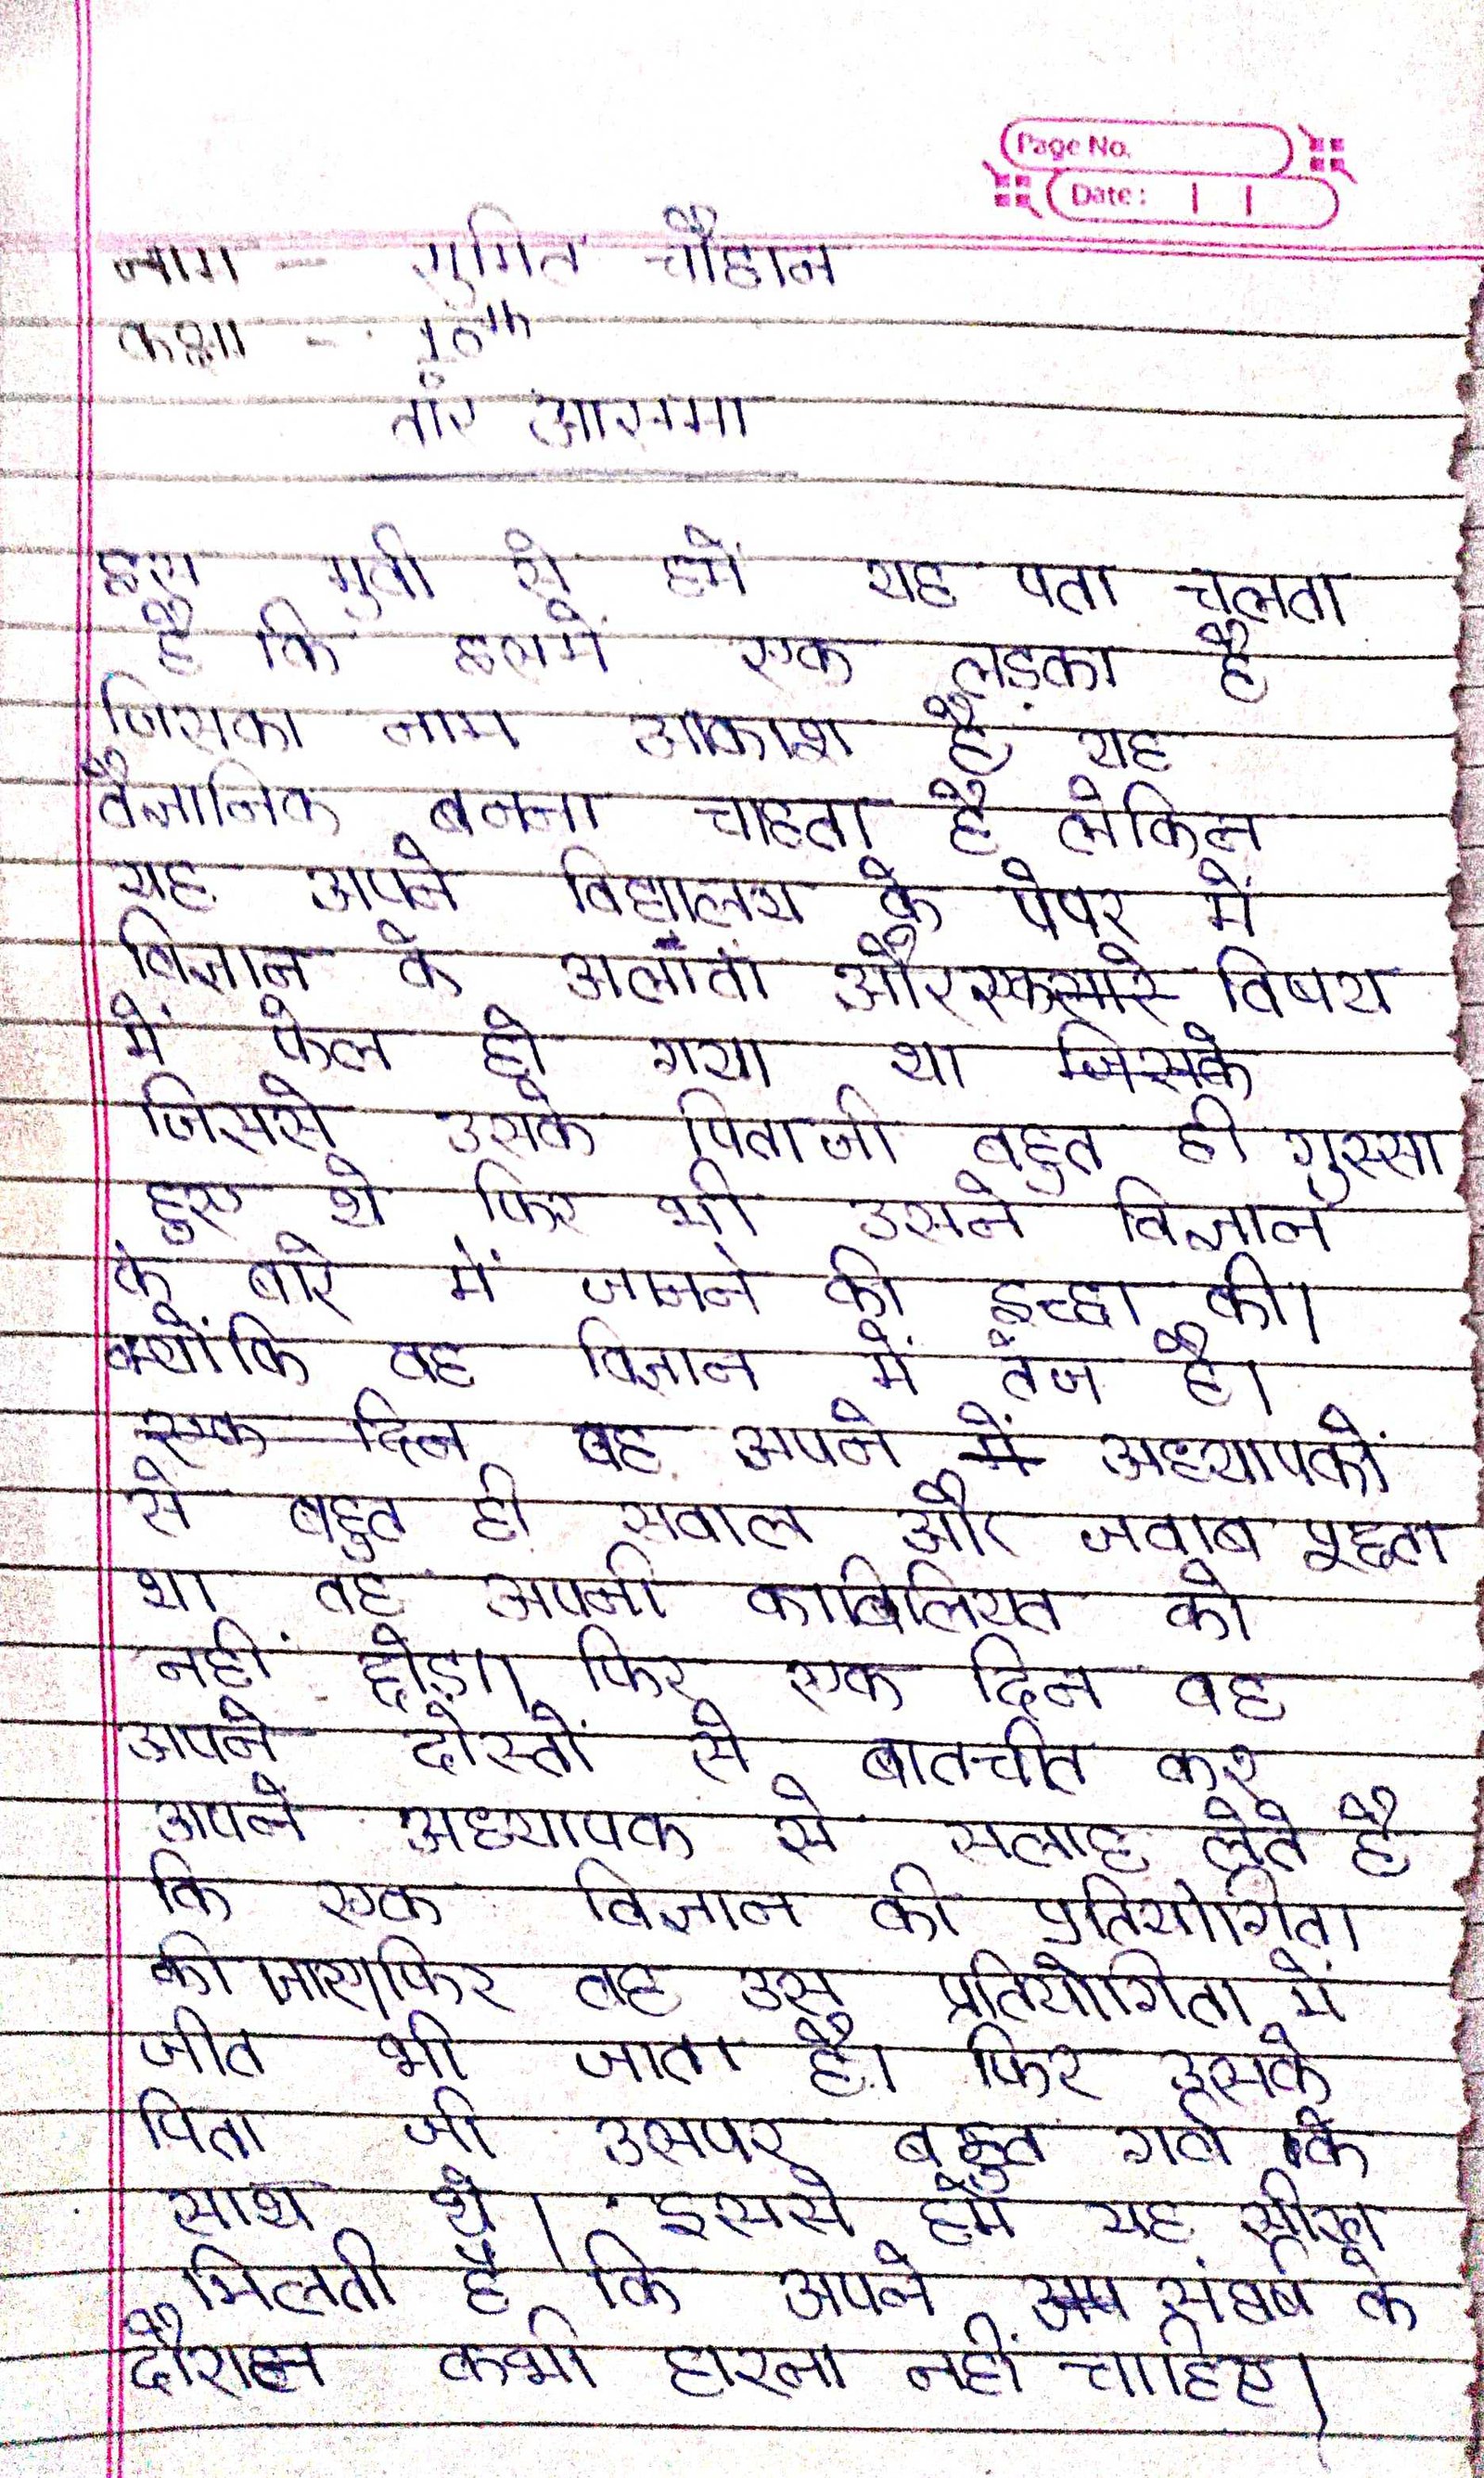 Page No.
Date :
नाम - सुमित चौहान
कक्षा - 10th
आसमा
इस मुवी से हमें यह पता चलता
है कि इसमें एक लड़का है
जिसका नाम आकाश है, यह
वैज्ञानिक बनना चाहता है लेकिन
यह अपने विद्यालय के पेपर में
विज्ञान के अलावा और सारे विषय
में फेल हो गया था जिसके
जिससे उसके पिताजी बहुत ही गुस्सा
हुए थे फिर भी उसने विज्ञान
के बारे में जानने की इच्छा की।
क्योंकि वह विज्ञान में तेज है।
एक दिन वह अपने में अध्यापकों
से बहुत ही सवाल और जवाब पूछता
था वह अपनी काबिलियत को
नहीं छोड़ा। फिर एक दिन वह
अपने दोस्तों से बातचीत कर
अपने अध्यापक से सलाह लेते है
कि एक विज्ञान की प्रतियोगिता
की जाए। फिर वह उस प्रतियोगिता में
जीत भी जाता है। फिर उसके
पिता जी उसपर बहुत गर्व के
साथ थे। इससे हमें यह सीख
मिलती है कि अपने अप संघर्ष के
दौरान कभी हारना नहीं चाहिए।